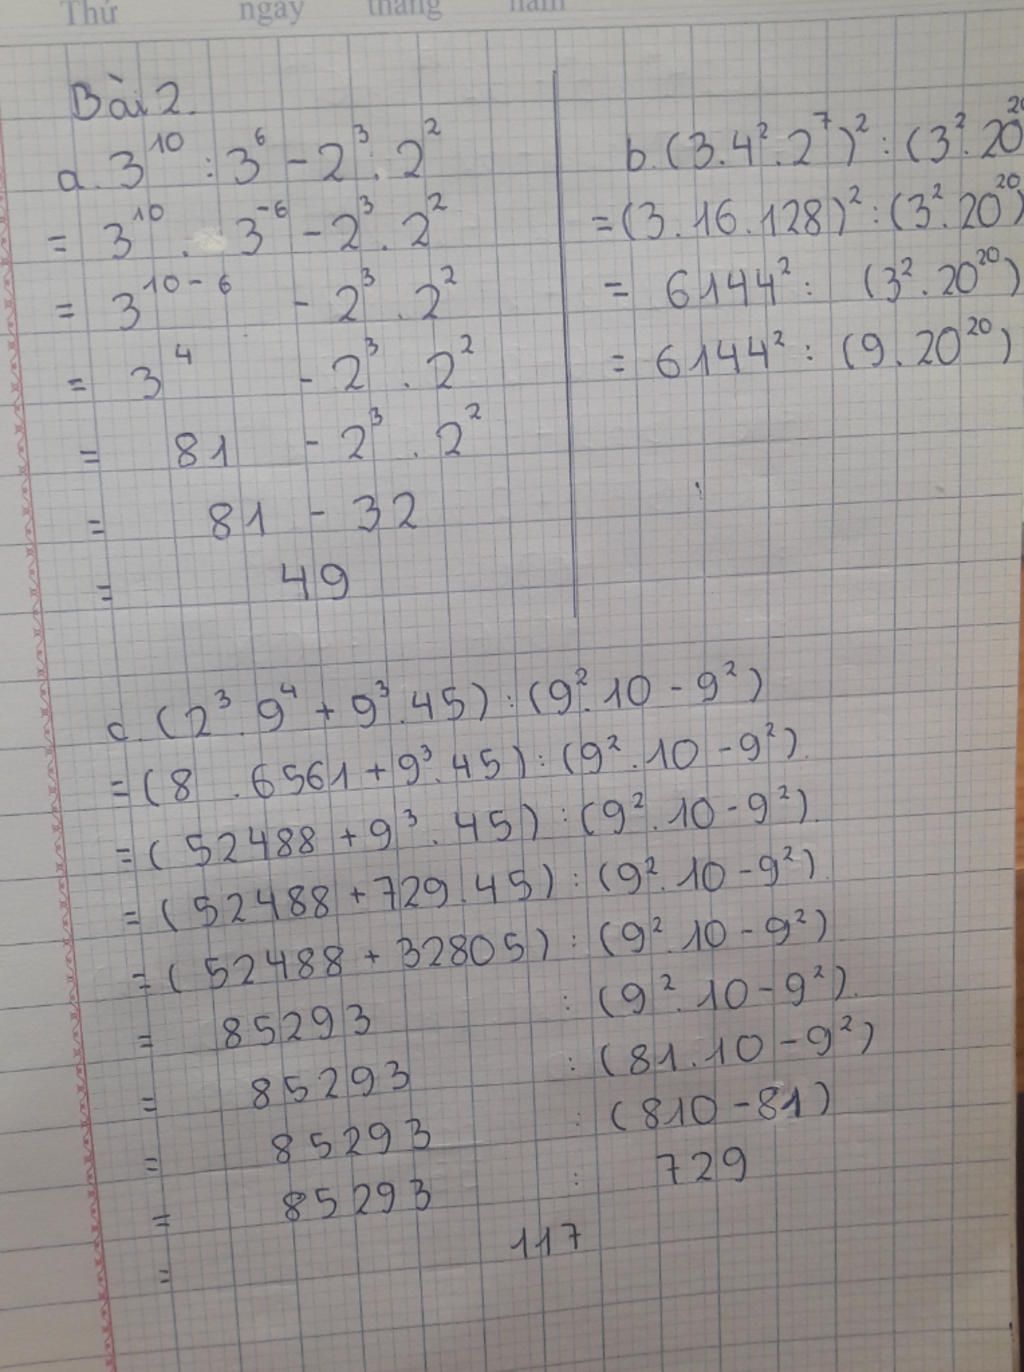 Thứ ngày tháng năm
Bài 2.
a. 3¹⁰ : 3⁶ - 2³ . 2²
= 3¹⁰ . 3⁻⁶ - 2³ . 2²
= 3¹⁰⁻⁶ - 2³ . 2²
= 3⁴ - 2³ . 2²
= 81 - 2³ . 2²
= 81 - 32
= 49
b. (3.4².2⁷)² : (3².20²⁰
= (3.16.128)² : (3².20²⁰)
= 6144² : (3².20²⁰)
= 6144² : (9.20²⁰)
c. (2³.9⁴ + 9³.45) : (9².10 - 9²)
= (8 . 6561 + 9³.45) : (9².10 - 9²).
= (52488 + 9³.45) : (9².10 - 9²).
= (52488 + 729.45) : (9².10 - 9²).
= (52488 + 32805) : (9².10 - 9²)
= 85293 : (9².10 - 9²).
= 85293 : (81.10 - 9²)
= 85293 : (810 - 81)
= 85293 : 729
= 117